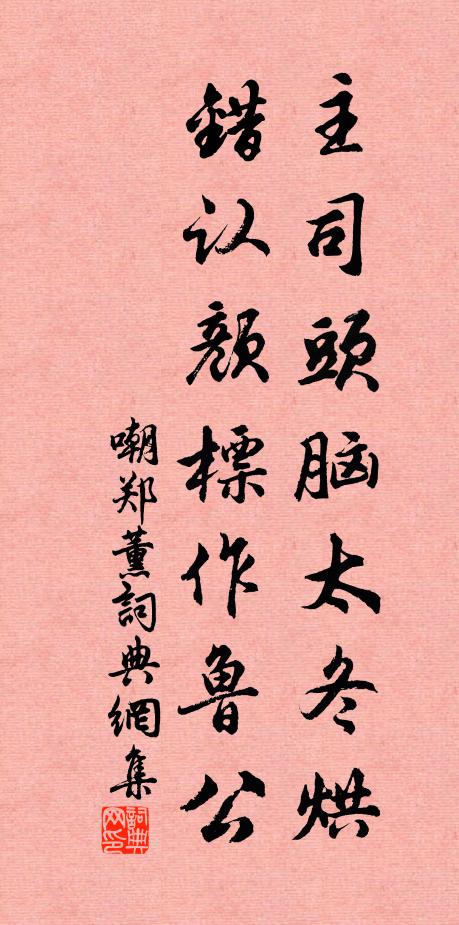 主司頭脑太冬烘
錯认颜標作鲁公
嘲郑薰詞典網集
詞典网印